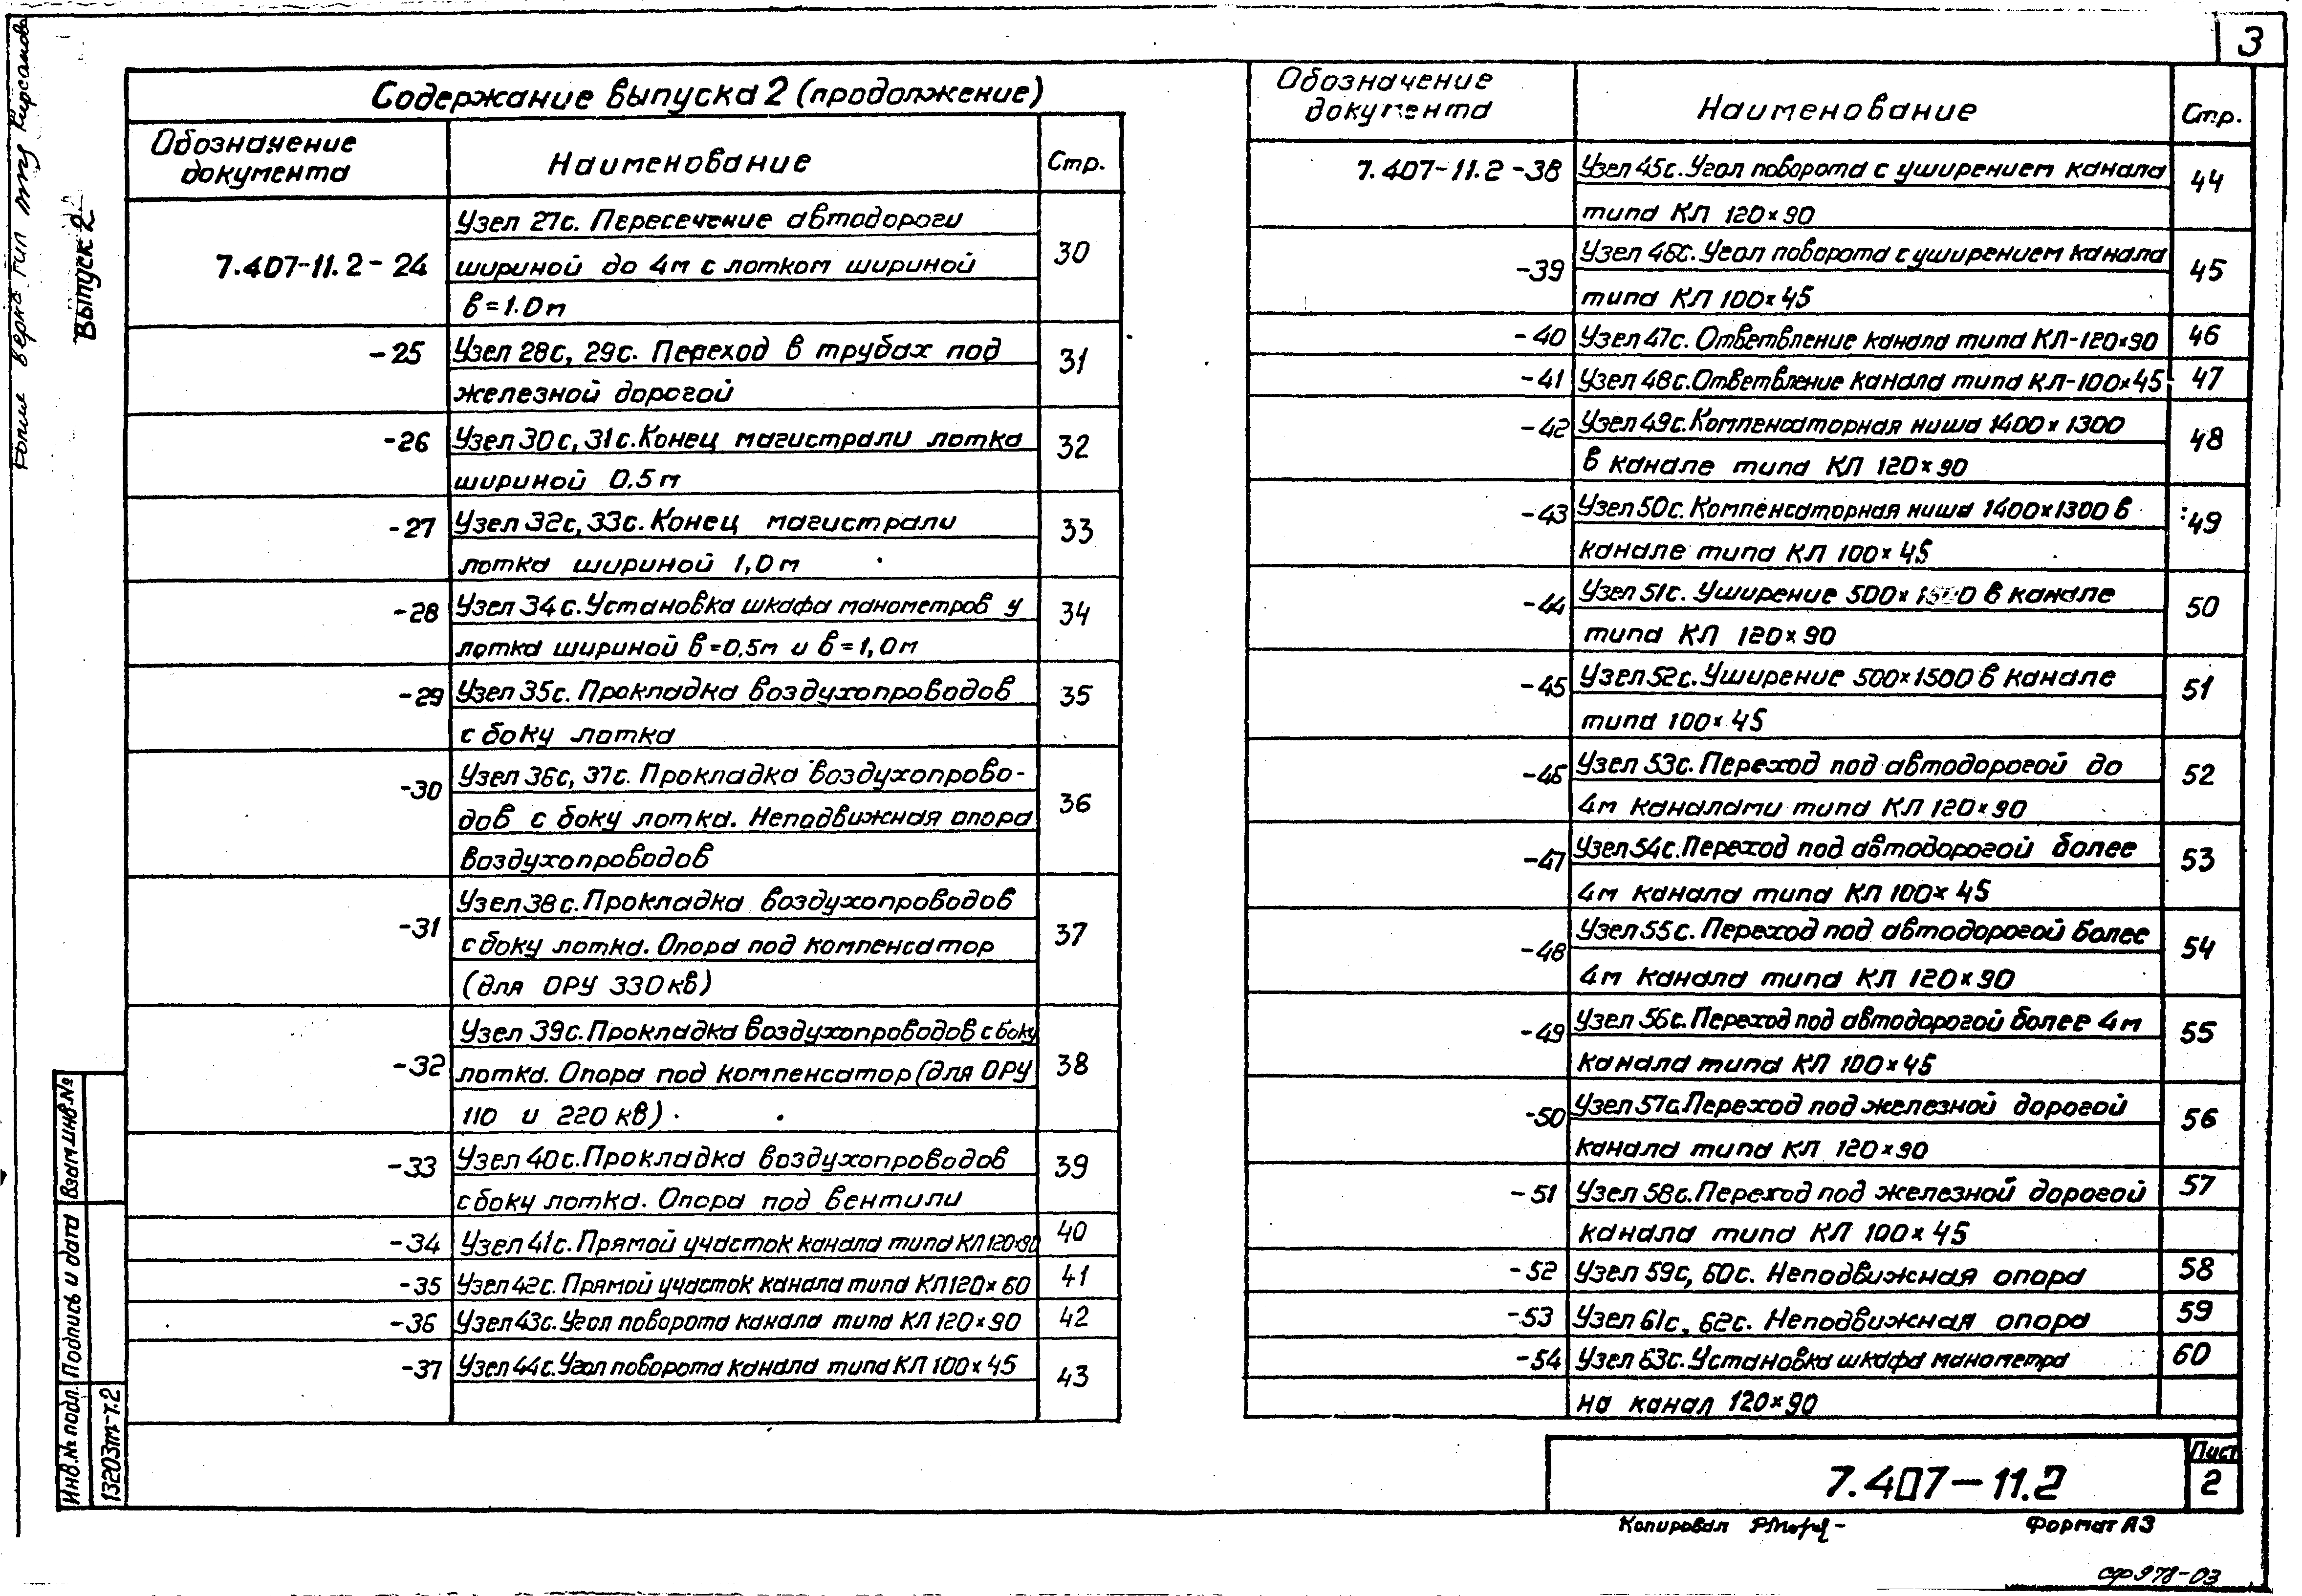 3
Содержание выпуска 2 (продолжение)
Обозначение документа
Наименование
Стр.
7.407-11.2-24
Узел 27с. Пересечение автодороги
шириной до 4м с лотком шириной
в=1.0м
30
-25
Узел 28с, 29с. Переход в трубах под
железной дорогой
31
-26
Узел 30с, 31с. Конец магистрали лотка
шириной 0.5м
32
-27
Узел 32с, 33с. Конец магистрали
лотка шириной 1,0м
33
-28
Узел 34с. Установка шкафа манометров у
лотка шириной в=0.5м и в=1,0м
34
-29
Узел 35с. Прокладка воздухопроводов
с боку лотка
35
-30
Узел 36с, 37с. Прокладка воздухопрово-
дов с боку лотка. Неподвижная опора
воздухопроводов
36
-31
Узел 38с. Прокладка воздухопроводов
с боку лотка. Опора под компенсатор
(для ОРУ 330кв)
37
-32
Узел 39с. Прокладка воздухопроводов с боку
лотка. Опора под компенсатор (для ОРУ
110 и 220кв)
38
-33
Узел 40с. Прокладка воздухопроводов
с боку лотка. Опора под вентили
39
-34
Узел 41с. Прямой участок канала типа КЛ 120×90
40
-35
Узел 42с. Прямой участок канала типа КЛ120×60
41
-36
Узел 43с. Угол поворота канала типа КЛ 120×90
42
-37
Узел 44с. Угол поворота канала типа КЛ 100×45
43
Обозначение документа
Наименование
Стр.
7.407-11.2-38
Узел 45с. Угол поворота с уширением канала
типа КЛ 120×90
44
-39
Узел 46с. Угол поворота с уширением канала
типа КЛ 100×45
45
-40
Узел 47с. Ответвление канала типа КЛ-120×90
46
-41
Узел 48с. Ответвление канала типа КЛ-100×45
47
-42
Узел 49с. Компенсаторная ниша 1400×1300
в канале типа КЛ 120×90
48
-43
Узел 50с. Компенсаторная ниша 1400×1300 в
канале типа КЛ 100×45
49
-44
Узел 51с. Уширение 500×1500 в канале
типа КЛ 120×90
50
-45
Узел 52с. Уширение 500×1500 в канале
типа 100×45
51
-46
Узел 53с. Переход под автодорогой до
4м каналами типа КЛ 120×90
52
-47
Узел 54с. Переход под автодорогой более
4м канала типа КЛ 100×45
53
-48
Узел 55с. Переход под автодорогой более
4м канала типа КЛ 120×90
54
-49
Узел 56с. Переход под автодорогой более 4м
канала типа КЛ 100×45
55
-50
Узел 57с. Переход под железной дорогой
канала типа КЛ 120×90
56
-51
Узел 58с. Переход под железной дорогой
канала типа КЛ 100×45
57
-52
Узел 59с, 60с. Неподвижная опора
58
-53
Узел 61с, 62с. Неподвижная опора
59
-54
Узел 63с. Установка шкафа манометра
на канал 120×90
60
7.407-11.2
Лист
2
Копировал
Формат А3
сф978-03
Выпуск 2
Копия верна ГИП Кирсанова
Взам.инв.№
Подпись и дата
Инв.№ подл.
13203тм-т.2